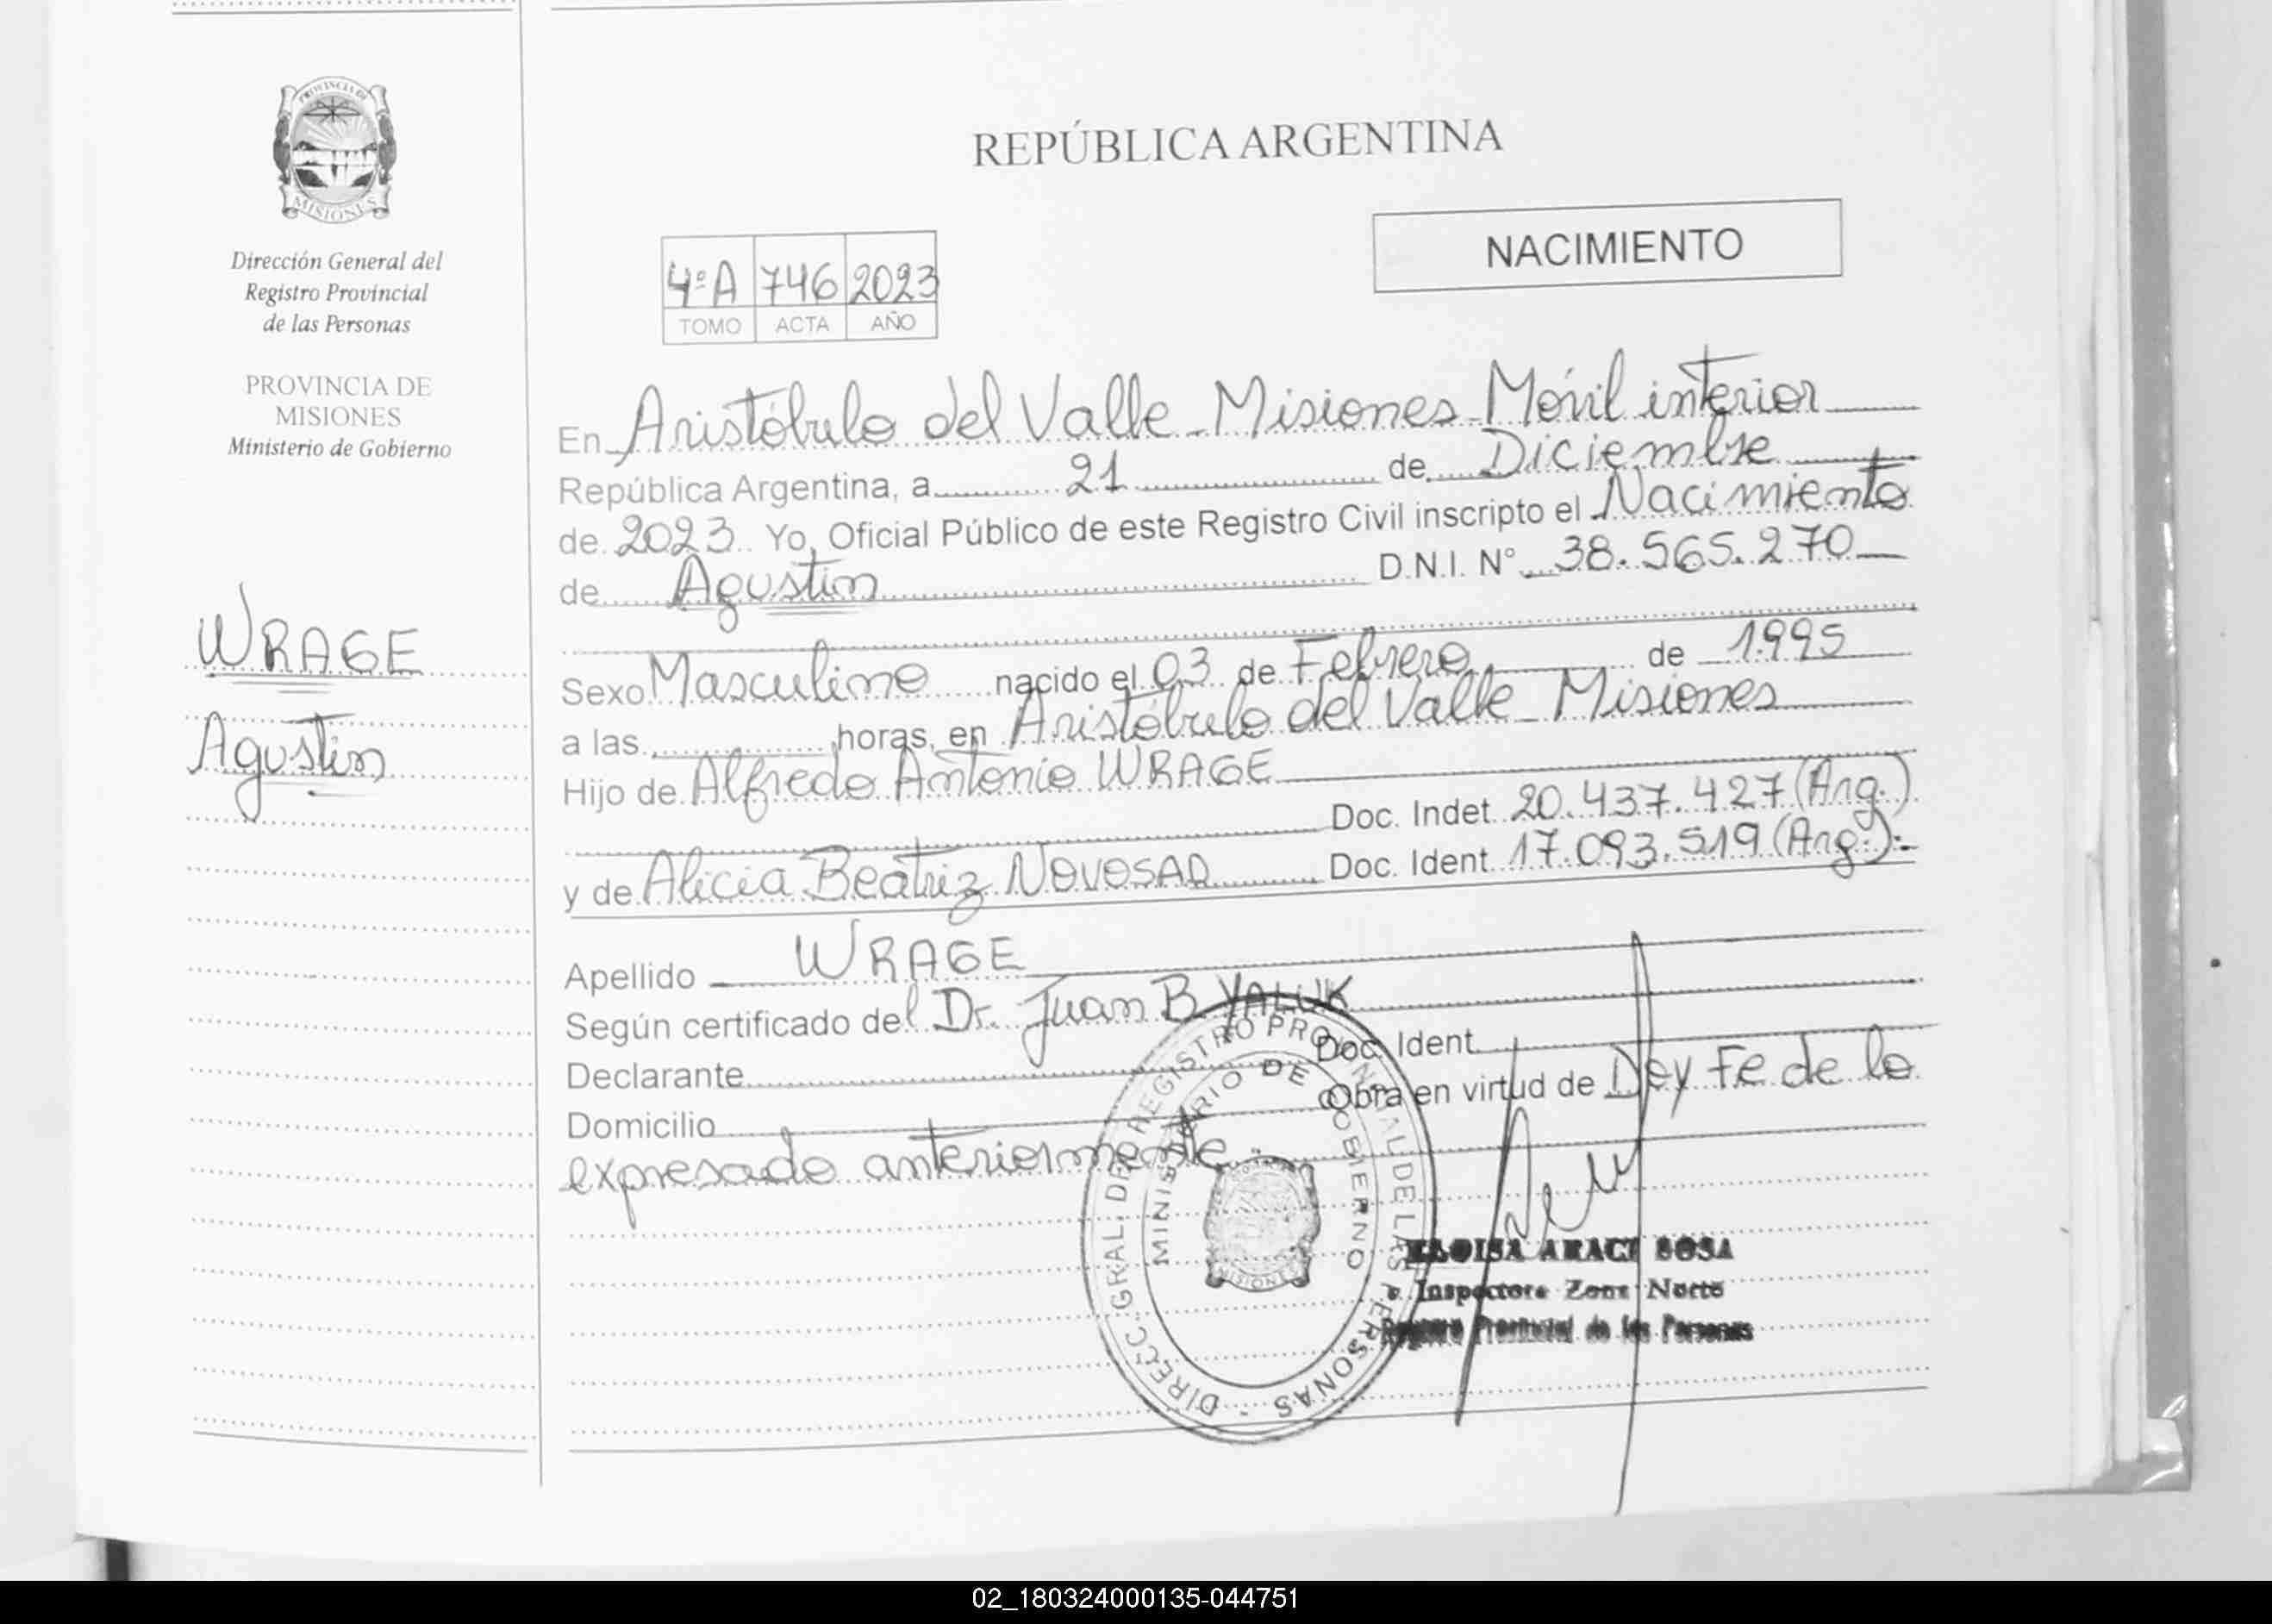 PROVINCIA DE
MISIONES
Dirección General del
Registro Provincial
de las Personas
PROVINCIA DE
MISIONES
Ministerio de Gobierno
WRAGE
Agustin
REPÚBLICA ARGENTINA
NACIMIENTO
4ºA 746 2023
TOMO ACTA AÑO
En Aristóbulo del Valle - Misiones - Móvil interior
República Argentina, a 21 de Diciembre
de 2023 Yo, Oficial Público de este Registro Civil inscripto el Nacimiento
de Agustin D.N.I. N° 38.565.270
Sexo Masculino nacido el 03 de Febrero de 1995
a las horas, en Aristóbulo del Valle - Misiones
Hijo de Alfredo Antonio WRAGE
Doc. Indet 20.437.427 (Arg.)
y de Alicia Beatriz NOVOSAD Doc. Ident 17.093.519 (Arg.)-
Apellido WRAGE
Según certificado del Dr. Juan B YALUK
Declarante Doc. Ident
Domicilio Obra en virtud de Doy Fe de lo
expresado anteriormente
DIRECC. GRAL. DEL REGISTRO PROVINCIAL DE LAS PERSONAS -
MINISTERIO DE GOBIERNO
MISIONES
ELOISA ARACI SOSA
Inspectora Zona Norte
Registro Provincial de las Personas
02_180324000135-044751